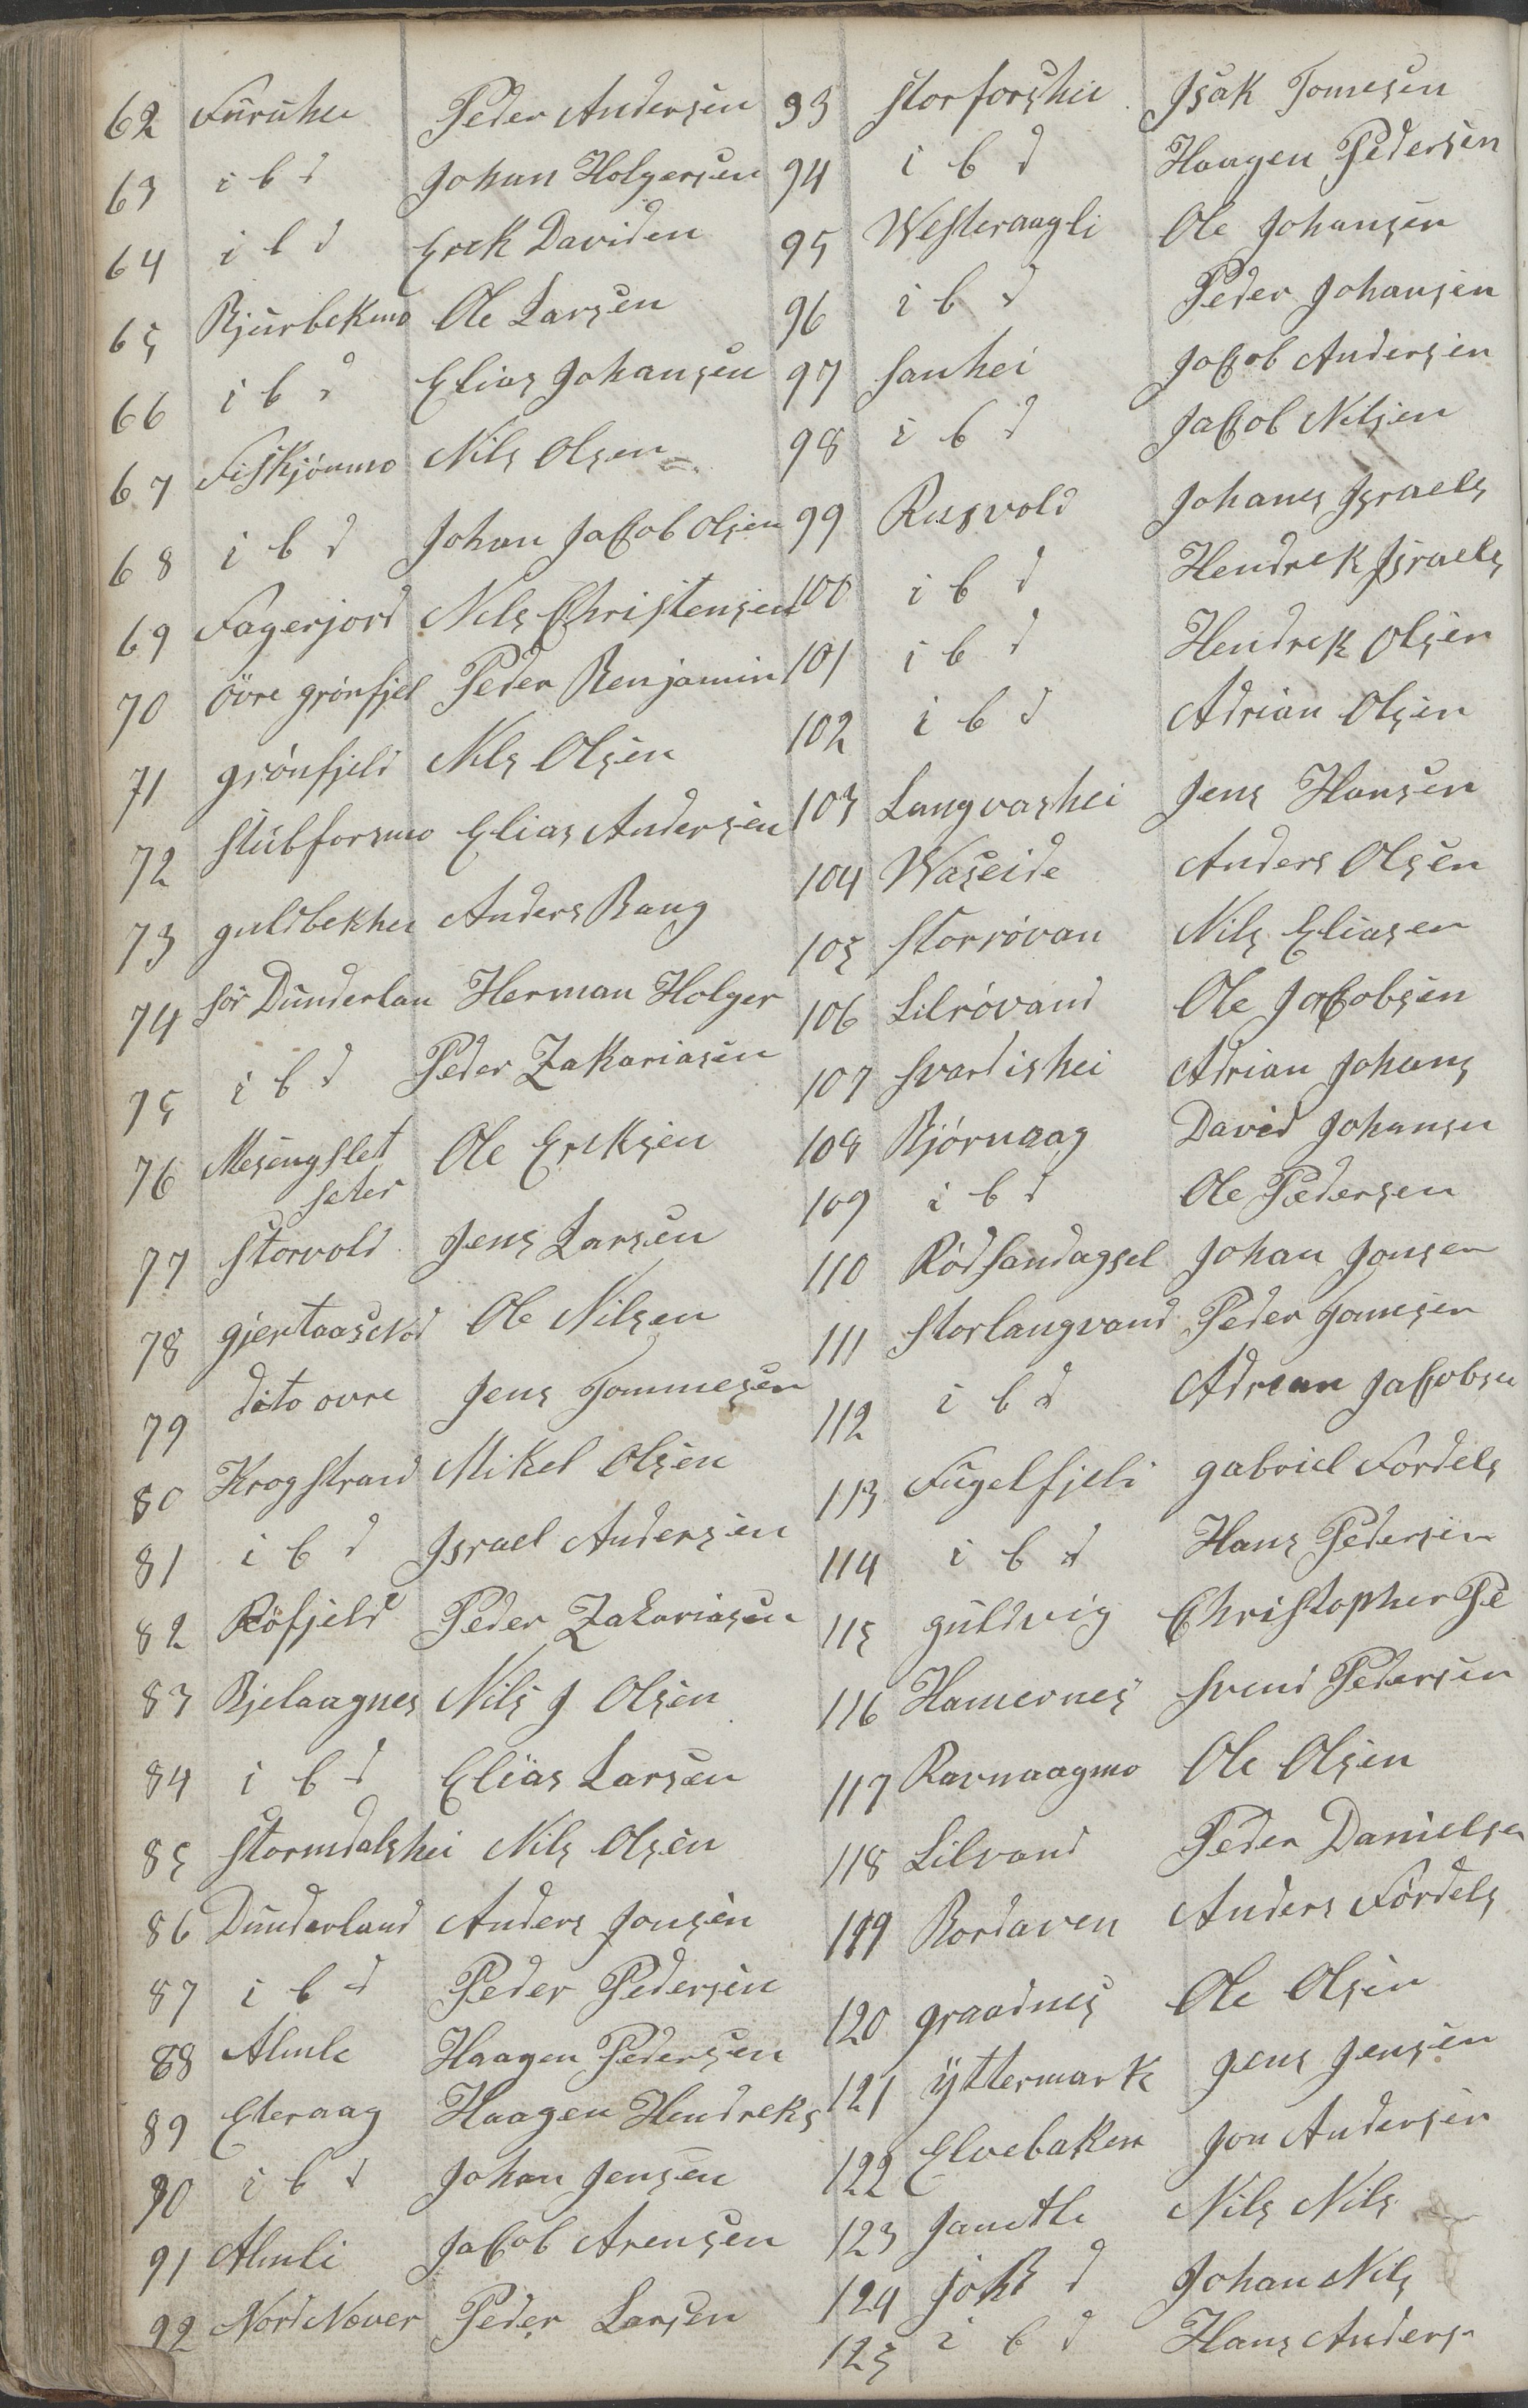 62 Furuhei Peder Andersen
63 i b d Johan Holgersen
64 i b d Erek Daviden
65 Bjurbekmo Ole Larsen
66 i b d Elias Johansen
67 Fiskjönmo Nils Olsen
68 i b d Johan Jacob Olsen
69 Fagerjord Nels Christensen
70 övre grönfjel Peder Benjamin
71 grönfjeld Nels Olsen
72 Stubforsmo Elias Andersen
73 guldbekhei Anders Bang
74 Sör Dunderlan Herman Holger
75 i b d Peder Zakariasen
76 Mesingslet Ole Ereksen
seter
77 Storvold Jens Larsen
78 gjertaas Nod Ole Nilsen
79 dito ovre Jens Tommesen
80 Krogstrand Mikel Olsen
81 i b d Israel Andersen
82 Röfjeld Peder Zakariasen
83 Bjelaagnes Nils J Olsen
84 i b d Elias Larsen
85 Stormdalshei Nils Olsen
86 Dunderland Anders Jonsen
87 i b d Peder Pedersen
88 Almle Haagen Pedersen
89 Eteraag Haagen Hendreks
90 i b d Johan Jensen
91 Almli Jacob Arensen
92 Nord Næver Peder Larsen
93 Storforshei Isak Tomesen
94 i b d Haagen Pedersen
95 Westeraagli Ole Johansen
96 i b d Peder Johansen
97 Sanhei Jacob Andersen
98 i b d Jacob Nilsen
99 Rusvold Johans Israels
100 i b d Hendrek Israels
101 i b d Hendrek Olsen
102 i b d Adrian Olsen
103 Langvashei Jens Hansen
104 Waseide Anders Olsen
105 Storrövan Nils Eliasen
106 Lilrövand Ole Jacobsen
107 Svardishei Adrian Johans
108 Bjørnaag David Johansn
109 i b d Ole Pedersen
110 Rödsandagsel Johan Jonsen
111 Storlangvand Peder Tomesen
112 i b d Adrean Jacobsn
113 Fugelfjeli gabriel Fordels
114 i b d Hans Pedersen
115 guldvig Christopher Pe
116 Hamernes Svend Pedersen
117 Ravnaagmo Ole Olsen
118 Lilvand Peder Danielsen
119 Bordaven Anders Fordels
120 graadnes Ole Olsen
121 Yttermark Jens Jensen
122 Elvebaken Jon Andersen
123 Jamtli Nils Nils
124 d Johan Nils
125 i b d Hans Anders